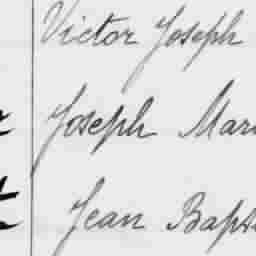 Victor Joseph
Joseph Mari
Jean Bapt